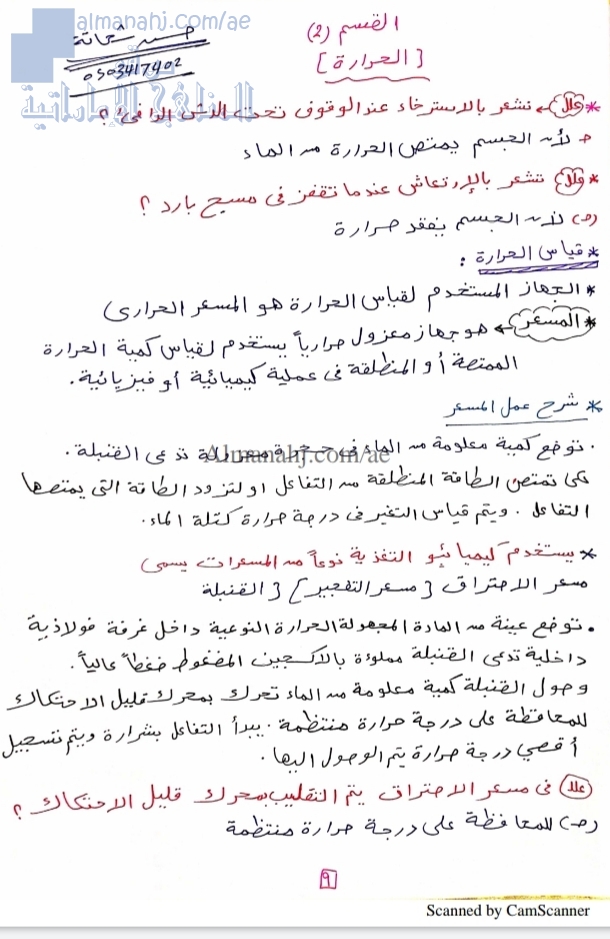 almanahj.com/ae
المناهج الإماراتية
حسن شحاتة
0503417402
القسم (2)
[الحرارة]
* علل نشعر بالاسترخاء عند الوقوف تحت الدش الدافئ ؟
لأن الجسم يمتص الحرارة من الماء
* علل تشعر بالإرتعاش عندما تقفز فى مسبح بارد ؟
(ج) لأن الجسم يفقد حرارة
* قياس الحرارة :
* الجهاز المستخدم لقياس الحرارة هو المسعر الحرارى
* المسعر هو جهاز معزول حرارياً يستخدم لقياس كمية الحرارة
الممتصة أو المنطلقة فى عملية كيميائية أو فيزيائية .
* شرح عمل المسعر
. توضع كمية معلومة من الماء فى حجرة معزولة تدعى القنبلة .
Almanahj.com/ae
لكى تمتص الطاقة المنطلقة من التفاعل او لتزود الطاقة التى يمتصها
التفاعل . ويتم قياس التغير فى درجة حرارة كتلة الماء .
* يستخدم كيميائيو التغذية نوعاً من المسعرات يسمى
مسعر الاحتراق [مسعر التفجير] [القنبلة
. توضع عينة من المادة المجهولة الحرارة النوعية داخل غرفة فولاذية
داخلية تدعى القنبلة مملوءة بالاكسجين المضغوط ضغطاً عالياً .
وحول القنبلة كمية معلومة من الماء تحرك بمحرك قليل الاحتكاك
للمحافظة على درجة حرارة منتظمة . يبدأ التفاعل بشرارة ويتم تسجيل
أقصي درجة حرارة يتم الوصول اليها .
علل فى مسعر الاحتراق يتم التقليب بمحرك قليل الاحتكاك ؟
(ج) للمحافظة على درجة حرارة منتظمة
٩
Scanned by CamScanner